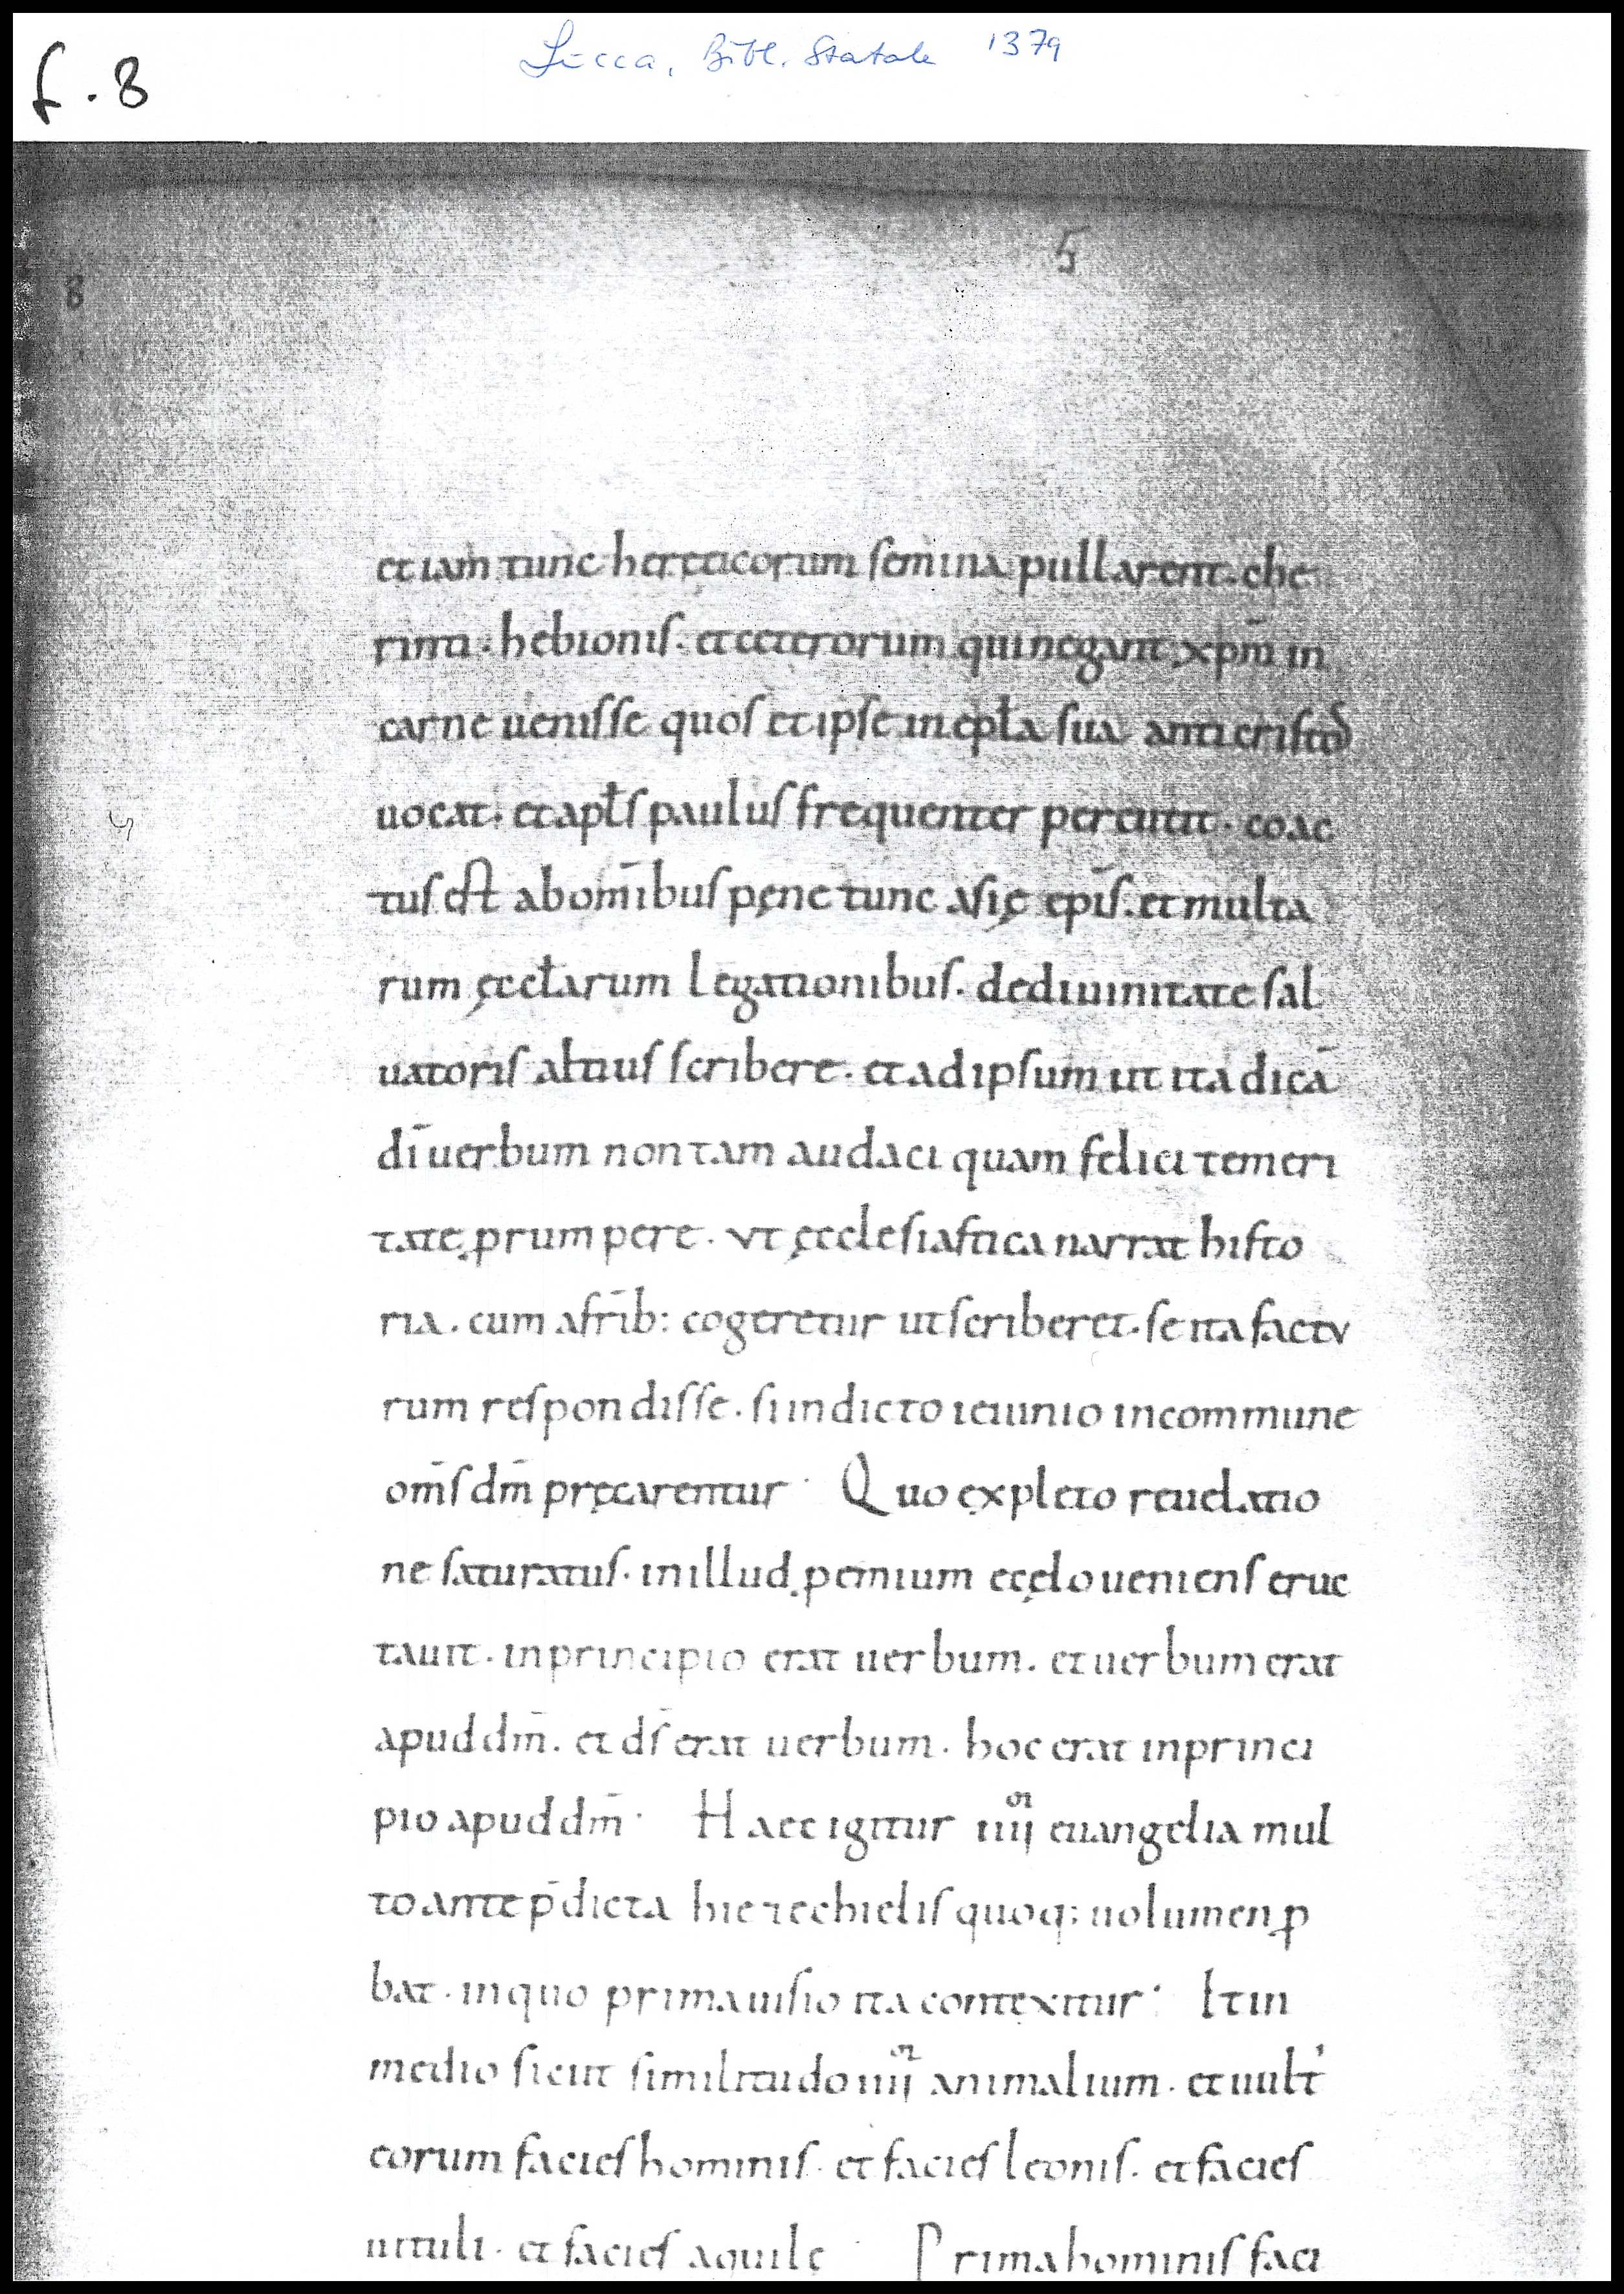 f. 8
Lucca, Bibl. Statale 1379
5
8
et iam tunc heręticorum semina pullarent. che
rinti. hebionis. et ceterorum qui negant xp̄m in
carne uenisse quos et ipse in epła sua anticristos
uocat. et apłs paulus frequenter percutit. coac
tus est ab om̄ibus pęne tunc asię ep̄is. et multa
rum ęccłarum legationibus. de diuinitate sal
uatoris altius scribere. et ad ipsum ut ita dicā
dī uerbum non tam audaci quam felici temeri
tate prumpere. vt ęcclesiastica narrat histo
ria. cum a fr̄ib: cogeretur ut scriberet. se ita factv
rum respondisse. si indicto ieiunio in commune
om̄s dm̄ pręcarentur. Quo ęxpleto reuelatio
ne saturatus. in illud pemium e cęlo ueniens eruc
tauit. in principio erat uerbum. et uerbum erat
apud dm̄. et ds̄ erat uerbum. hoc erat in princi
pio apud dm̄. Haec igitur iiii or euangelia mul
to ante p̄dicta hiezechielis quoq; uolumen ꝓ
bat. in quo prima uisio ita contexitur. It in
medio sicut similitudo iiii or animalium. et uult'
eorum facies hominis. et facies leonis. et facies
uituli. et facies aquile Prima hominis faci